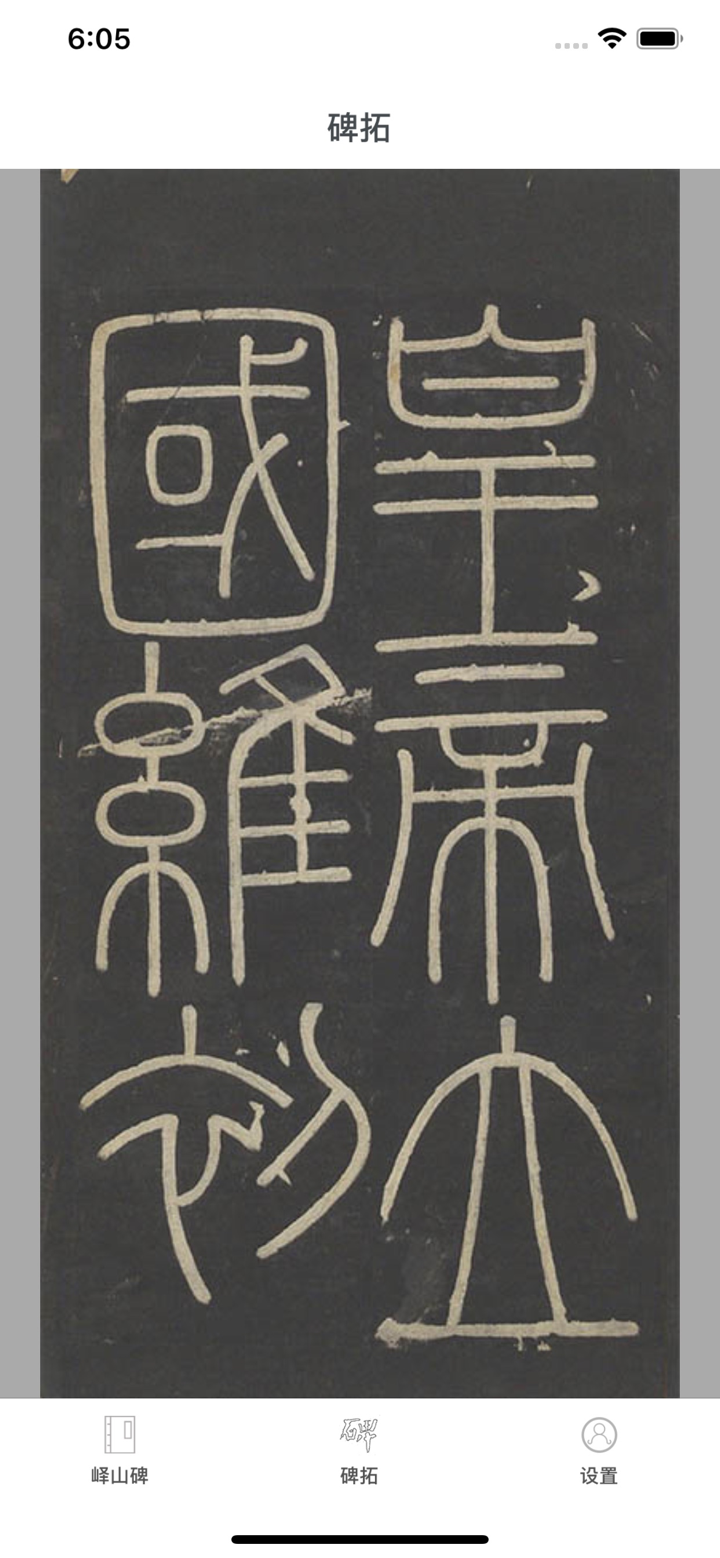 6:05
碑拓
皇帝立
國維初
峄山碑
碑拓
设置